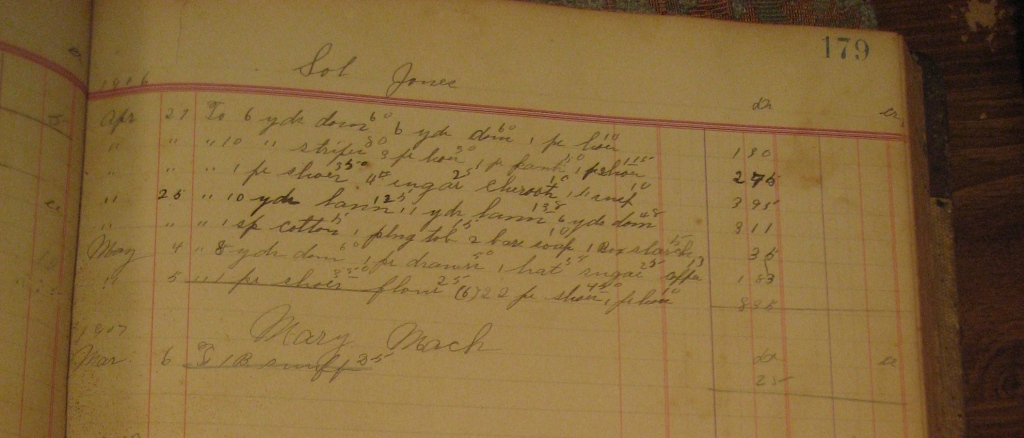 179
Sol Jones
1906 dr cr
Apr 21 To 6 yds dom 60 6 yds dom 60 1 pr hose 10 130
" " " 10 " stripe 80 3 pr hose 30 1 pr pants 50 1 pr shoes 115 275
" " " 1 pr shoes 350 4# sugar 25 cheroots 10 1 " snuff 10 395
" 25 " 10 yds lawn 125 11 yds lawn 138 6 yds dom 48 311
" " " 1 sp cotton 5 1 plug tob 5 2 bars soap 10 1 Box starch 15 35
May 4 " 8 yds dom 60 1 pr drawers 50 1 hat 35 sugar 25 coffee 13 183
" 5 " 1 pr shoes 350 flour 25 (6) 22 pr shoes 450 1 pr hose 10 835
Mary Mach
1907 dr cr
Mar 6 To 1 B snuff 25 25